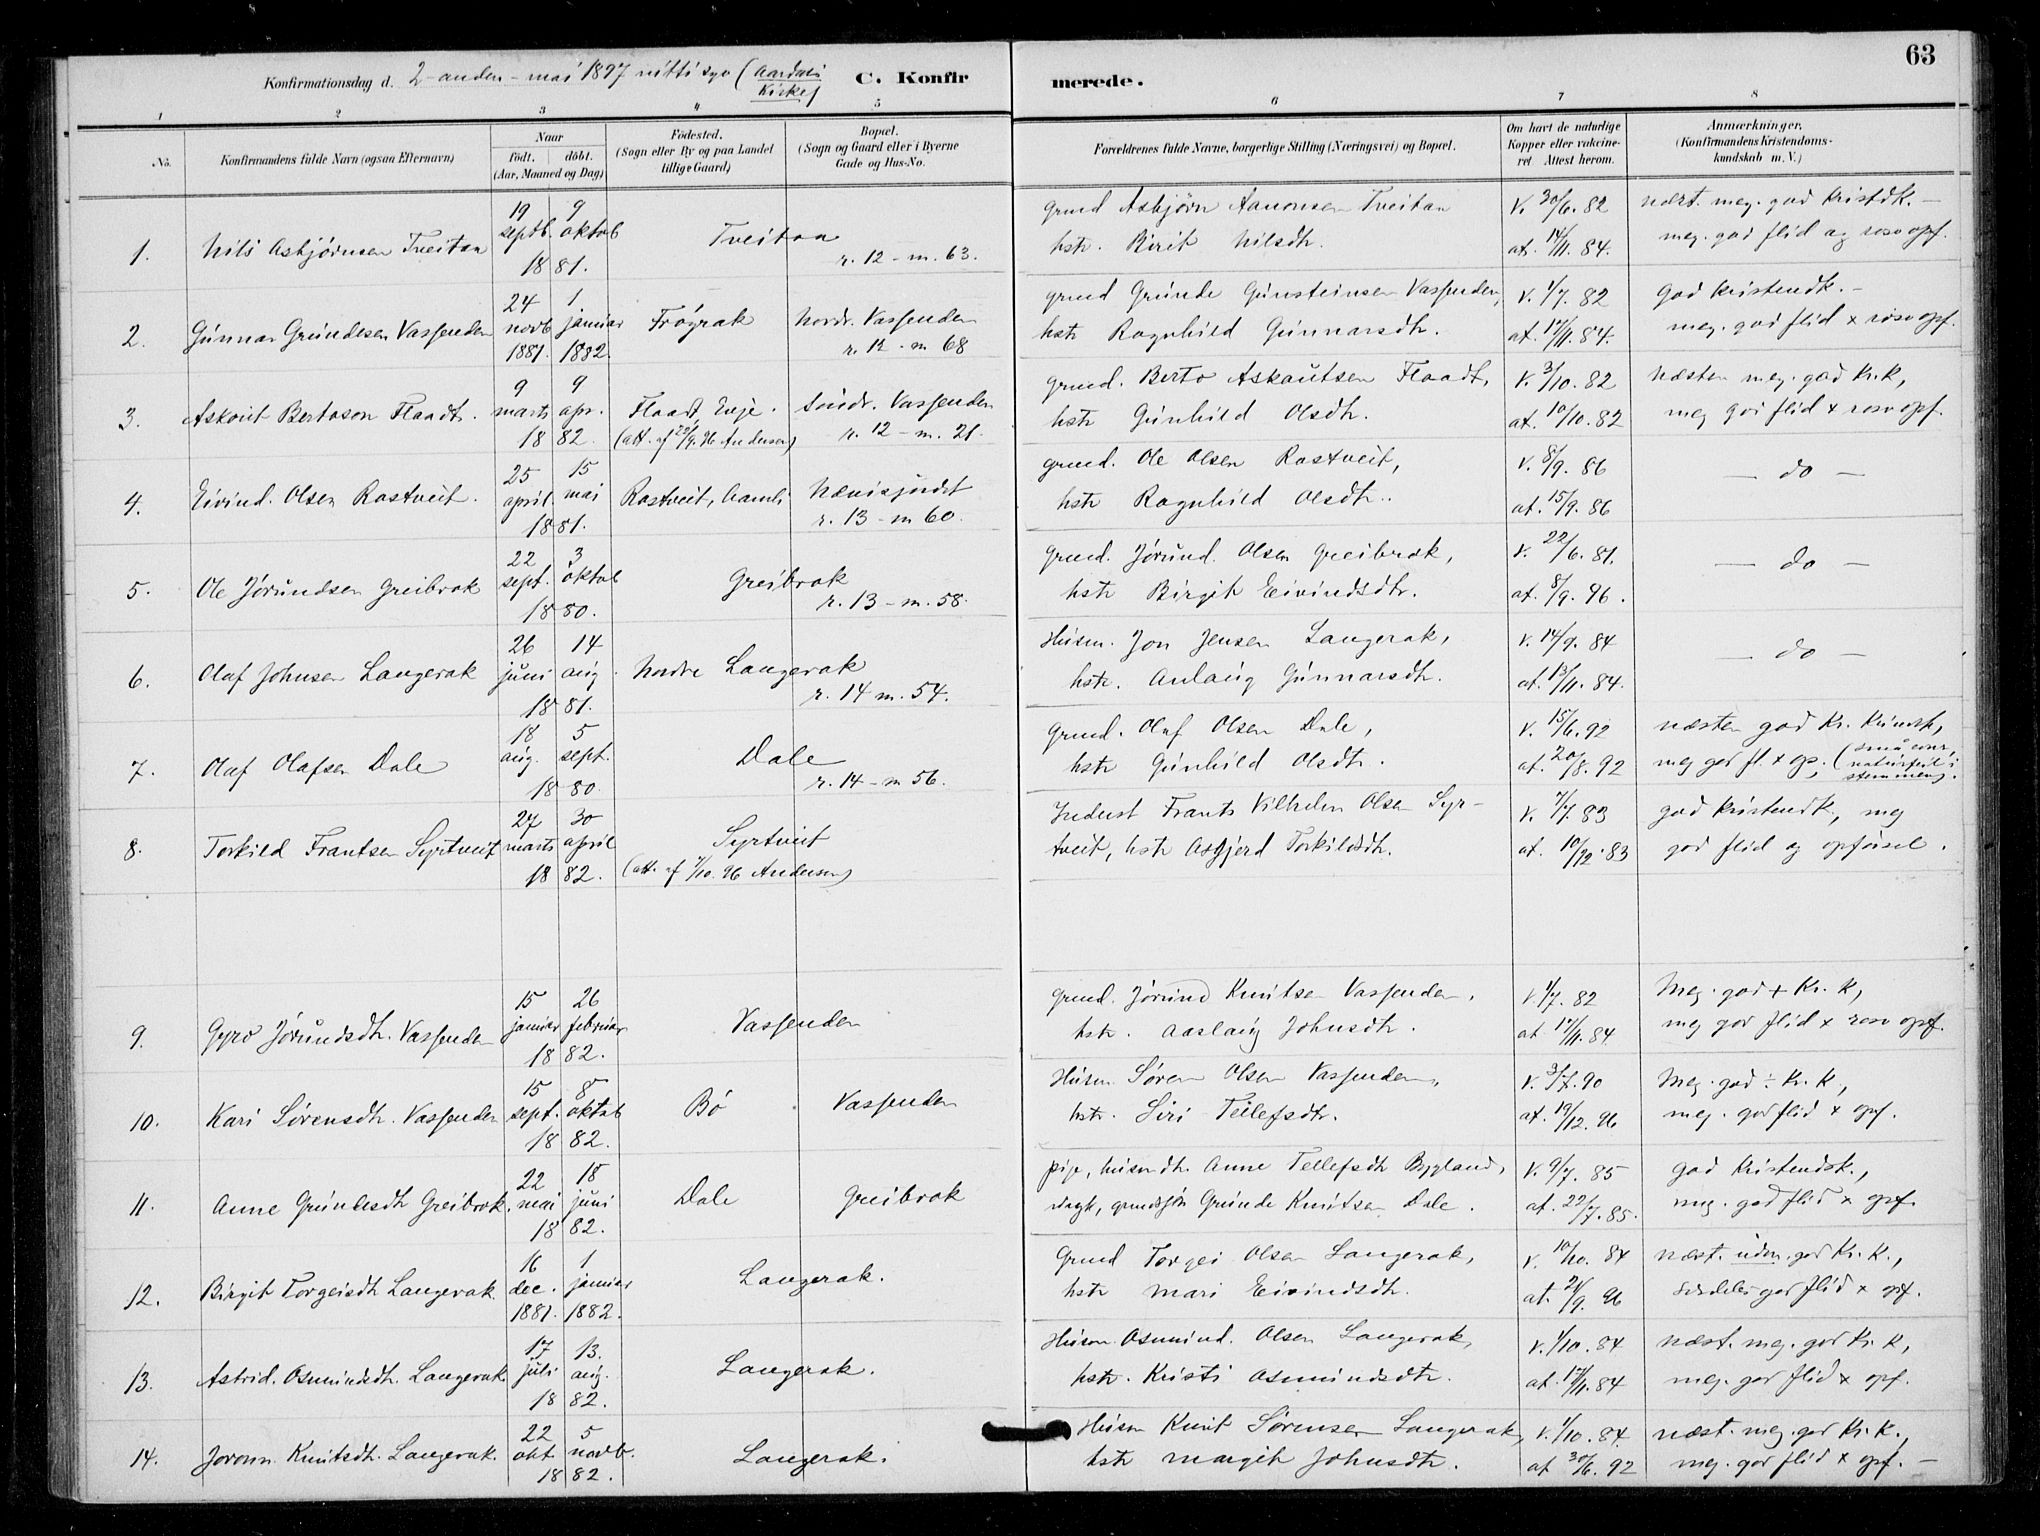 63
Konfirmationsdag d. 2-anden-mai 1897 nitti syv (Aardals Kirke)
C. Konfirmerede.
1 2 3 4 5 6 7 8
No.
Konfirmandens fulde Navn (ogsaa Efternavn)
Naar
födt. döbt.
(Aar, Maaned og Dag)
Födested.
(Sogn eller By og paa Landet
tillige Gaard)
Bopæl.
(Sogn og Gaard eller i Byerne
Gade og Hus-No.
Forældrenes fulde Navne, borgerlige Stilling (Næringsvei) og Bopæl.
Om havt de naturlige
Kopper eller vakcine-
ret Attest herom.
Anmærkninger.
(Konfirmandens Kristendoms-
kundskab m. V.)
1. Nils Asbjørnsen Tveitan
19 septb. 9 oktob 1881.
Tveitan
r. 12 - m. 63.
Grmd Asbjørn Aanonsen Tveitan
hstr. Birit Nilsdtr.
v. 30/6. 82
at. 14/11. 84.
nært. meg. god Kristdk. -
meg. god flid og rosv opf.
2. Gunnar Grundesen Vassenden
24 novb 1881. 1 januar 1882.
Frøyrak
Nordr. Vassenden
r. 12 - m 68
grmd Grunde Gunsteinsen Vassenden,
hstr Ragnhild Gunnarsdtr.
v. 1/7. 82
at. 17/11. 84.
God kristendk. -
meg. god flid + rosv opf.
3. Askout Bertoson Flaadt.
9 marts 9 apr. 1882.
Flaadt, Evje.
(att. af 29/9. 96 Andersen)
Søndr. Vassenden
r. 12 - m. 21.
grmd. Berto Askoutsen Flaadt,
hstr Gunhild Olsdtr.
v. 3/10. 82
at. 10/10. 82
Næsten meg. god Kr.k,
meg god flid + rosv opf.
4. Eivind Olsen Rostveit.
25 april 15 mai 1881.
Rostveit, Aamli
r. 13 - m 60.
grmd. Ole Olsen Rostveit,
hstr Ragnhild Olsdtr.
v. 8/9. 86
at. 15/9. 86
- do -
5. Ole Jørundsen Greibrok
22 sept. 3 oktob 1880.
Greibrok
r. 13 - m. 58.
Grmd. Jørund Olsen Greibrok,
hstr Birgit Eivindsdtr.
v. 22/6. 81.
at. 8/9. 96.
- do -
6. Olaf Johnsen Langerak
26 juni 14 aug. 1881.
Nordre Langerak
r. 14 m. 54.
Husm. Jon Jensen Langerak,
hstr. Anlaug Gunnarsdtr.
v. 14/9. 84
at. 13/11. 84.
- do -
7. Olaf Olafsen Dale
18 aug. 5 sept. 1880.
Dale
r. 14 - m 56.
Grmd. Olaf Olsen Dale,
hstr Gunhild Olsdtr.
v. 15/6. 92
at. 20/8. 92
næsten god Kr. Kundsk,
meg god fl. + op. (
naturfeil i
stemmen).
8. Torkild Frantsen Syrtveit
27 marts 30 april 1882.
Syrtveit
(att. af 7/10. 96 Andersen)
Inderst Frants Vilhelm Olsen Syr-
tveit, hstr Asgjerd Torkildsdtr.
v. 7/7. 83
at. 10/12. 83
god kristendk, meg
god flid og opførsel.
9. Gyro Jørundsdtr. Vassenden
15 januar 26 februar 1882.
Vassenden
Grmd. Jørund Knutsen Vassenden.
hstr. Aaslaug Johnsdtr.
v 1/7. 82
at 17/11. 84.
Meg. god + Kr. k,
meg god flid + rosv opf.
10. Kari Sørensdtr. Vassenden
15 sept. 8 oktob 1882.
Bø
Vassenden
Husm. Søren Olsen Vassenden,
hstr. Siri Tellefsdtr.
v. 3/7. 90
at. 19/12. 96
Meg. god ÷ Kr. k,
meg. god flid + opf.
11. Anne Grundesdtr Greibrok.
22 mai 18 juni 1882.
Dale
Greibrok
pige, husmdtr. Anne Tellefsdtr Bygland,
ungk, grmdssøn Grunde Knutsen Dale.
v. 9/7. 85
at. 22/7. 85.
god Kristendsk.,
meg. god flid + opf.
12. Birgit Torgeisdtr Langerak
16 dec. 1881. 1 januar 1882.
Langerak.
Grmd Torgei Olsen Langerak,
hstr Mari Eivindsdtr.
v. 10/10. 84
at. 21/9. 96
næst. udm. god Kr. k.,
særdeles god flid + opf.
13. Astrid. Osmundsdtr. Langerak.
17 juli 13. aug. 1882.
Langerak.
Husm. Osmund. Olsen Langerak,
hstr. Kristi Osmundsdtr.
v. 1/10. 84
at. 17/11. 84
næst. meg. god Kr. k,
meg. god flid + opf.
14. Joronn Knutsdtr. Langerak.
22 okt. 5 novb. 1882.
Langerak.
Husm Knut Sørensen Langerak,
hstr Margit Johnsdtr.
v. 1/10. 84.
at 30/6. 92
næst. meg. god Kr. k.,
meg. god flid + opf. -